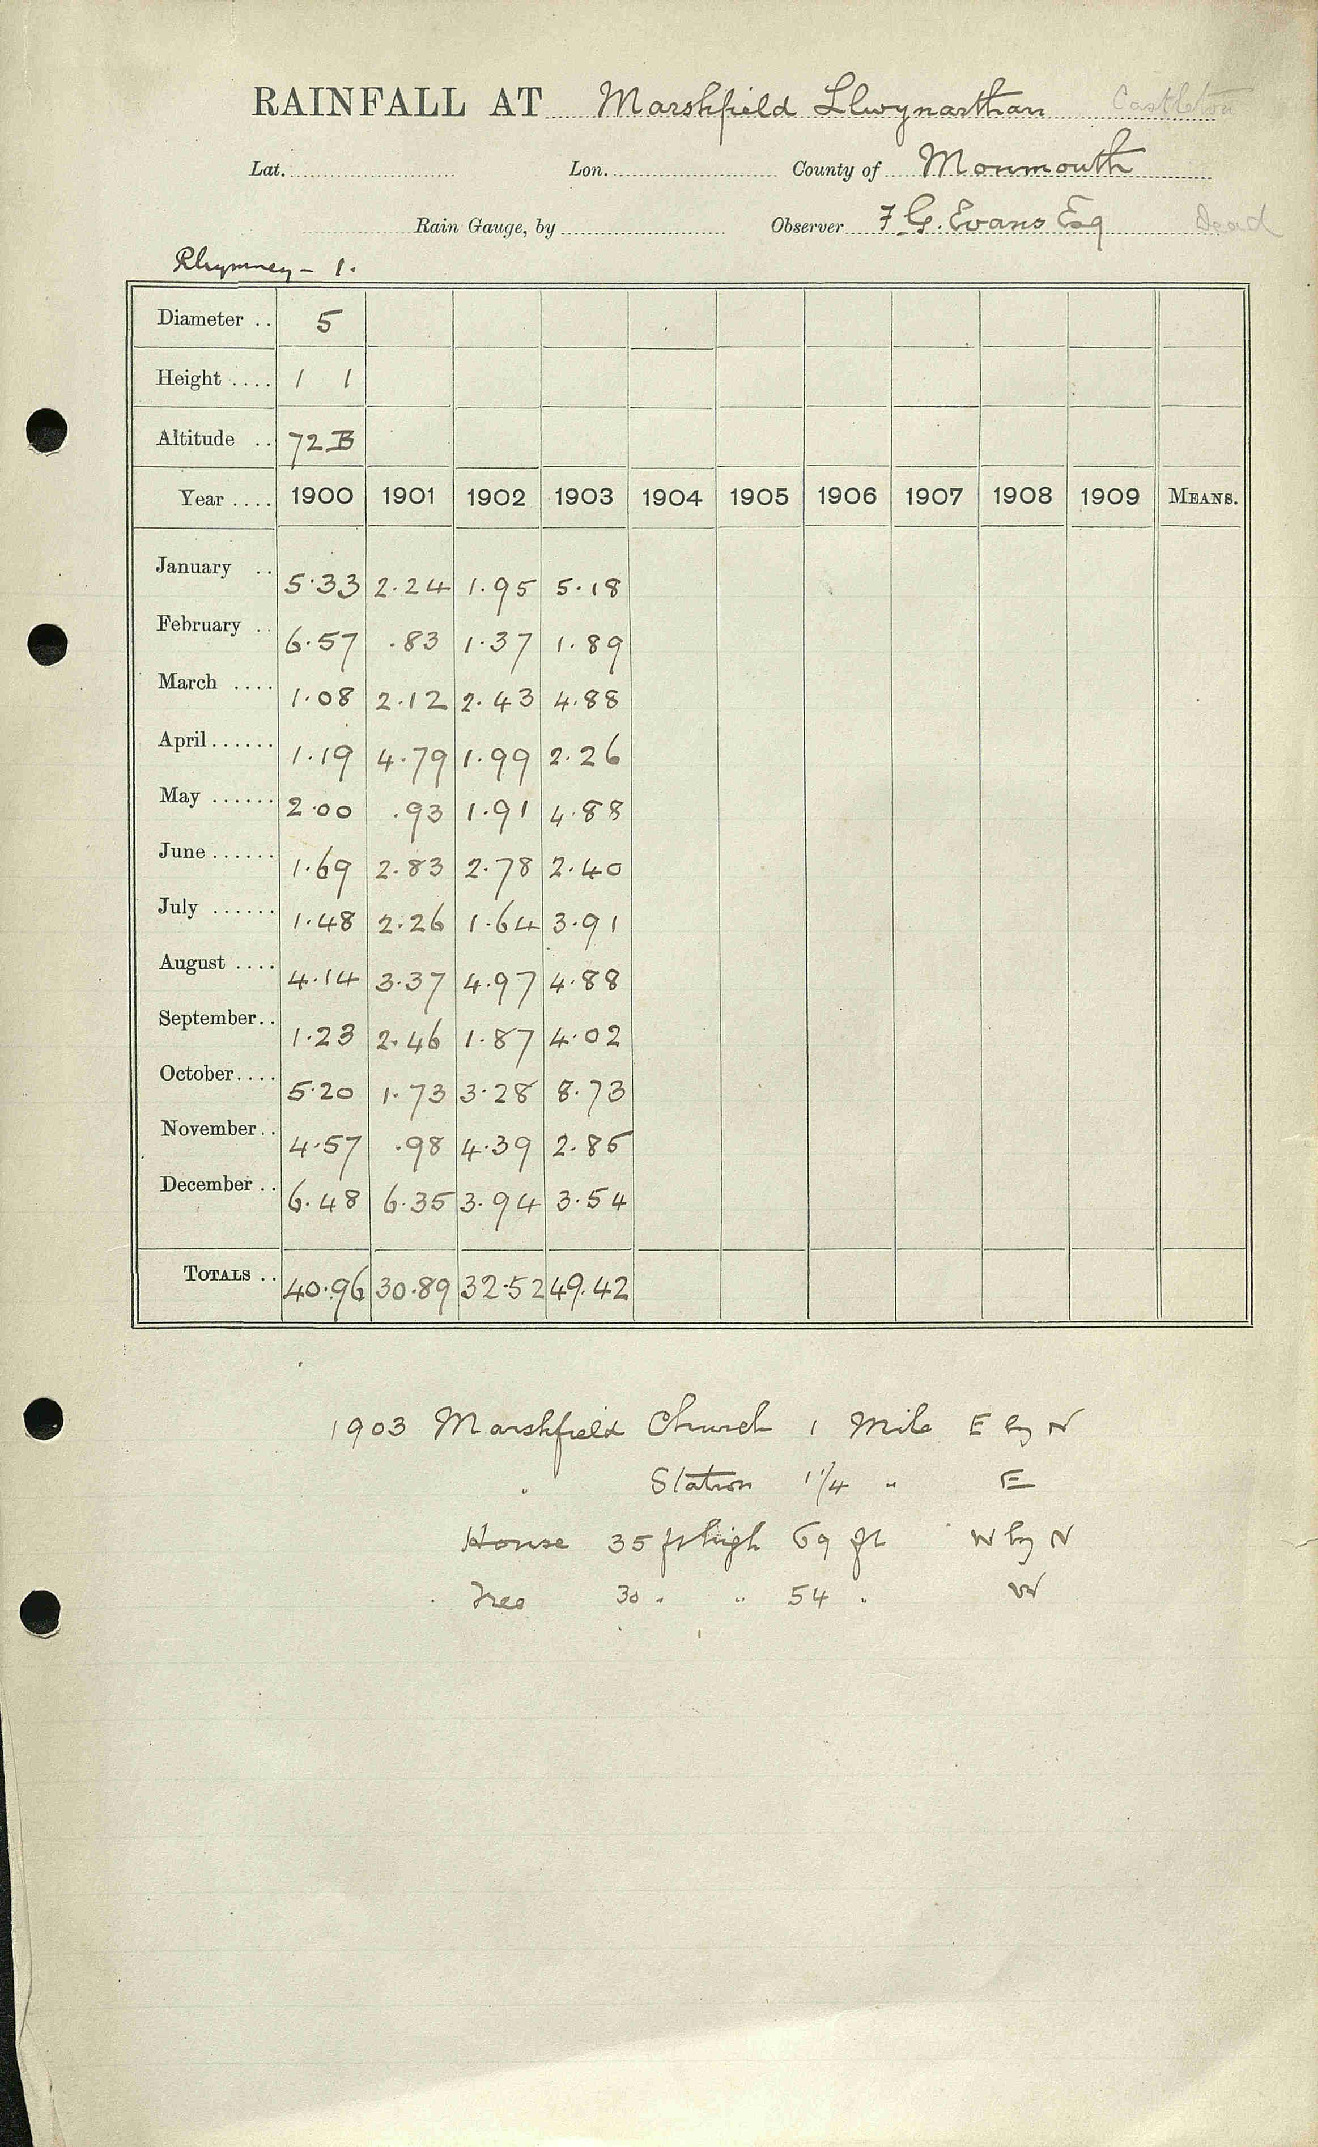 RAINFALL AT Marshfield Llwynarthan Castleton
Lat. Lon. County of Monmouth
Rain Gauge, by Observer F. G. Evans Esq Dead
Rhymney - 1.
Diameter .. 5
Height .... 1 1
Altitude .. 72 B
Year .... 1900 1901 1902 1903 1904 1905 1906 1907 1908 1909 MEANS.
January .. 5.33 2.24 1.95 5.18
February .. 6.57 .83 1.37 1.89
March .... 1.08 2.12 2.43 4.88
April ...... 1.19 4.79 1.99 2.26
May ...... 2.00 .93 1.91 4.88
June ...... 1.69 2.83 2.78 2.40
July ...... 1.48 2.26 1.64 3.91
August .... 4.14 3.37 4.97 4.88
September.. 1.23 2.46 1.87 4.02
October.... 5.20 1.73 3.28 8.73
November.. 4.57 .98 4.39 2.85
December .. 6.48 6.35 3.94 3.54
TOTALS .. 40.96 30.89 32.52 49.42
1903 Marshfield Church 1 Mile E by N
" Station 1 1/4 " E
House 35 ft high 69 ft W by N
Tree 30 " " 54 " W